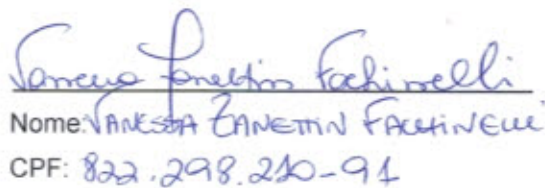 Vanessa Zanettin Fachinelli
Nome: VANESSA ZANETTIN FACHINELLI
CPF: 822.298.210-91